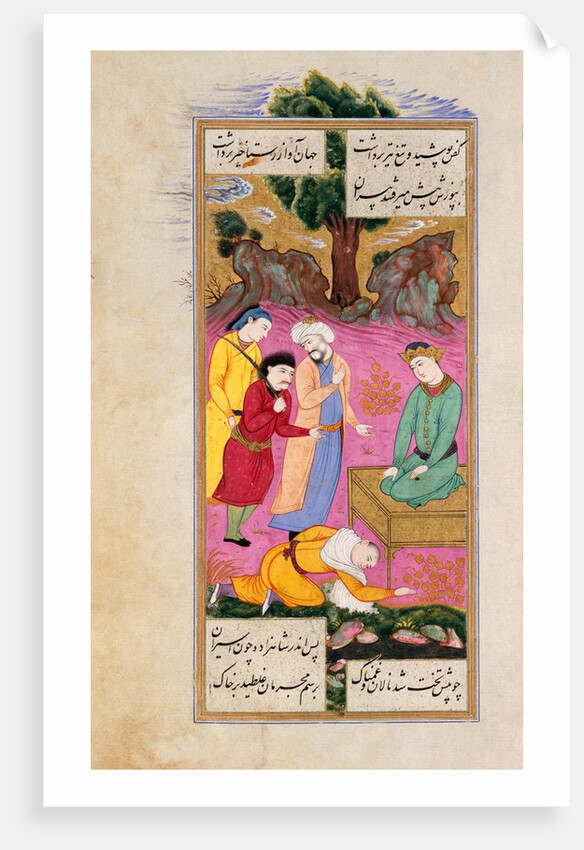 کفن پوشید و تیغ تیز برداشت
جهان آواز رستاخیز برداشت
بپوزش پیش میرفتند پیران
پس اندر شاهزاده چون اسیران
چو پیش تخت شد نالان و غمناک
برسم مجرمان غلطید بر خاک